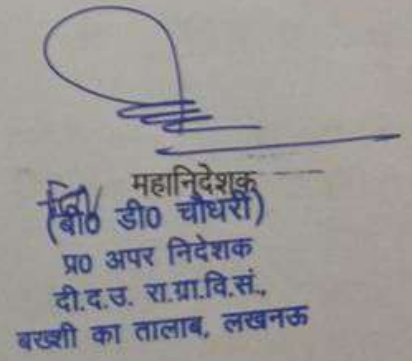 महानिदेशक
(बी0 डी0 चौधरी)
प्र0 अपर निदेशक
दी.द.उ. रा.ग्रा.वि.सं.,
बख्शी का तालाब, लखनऊ